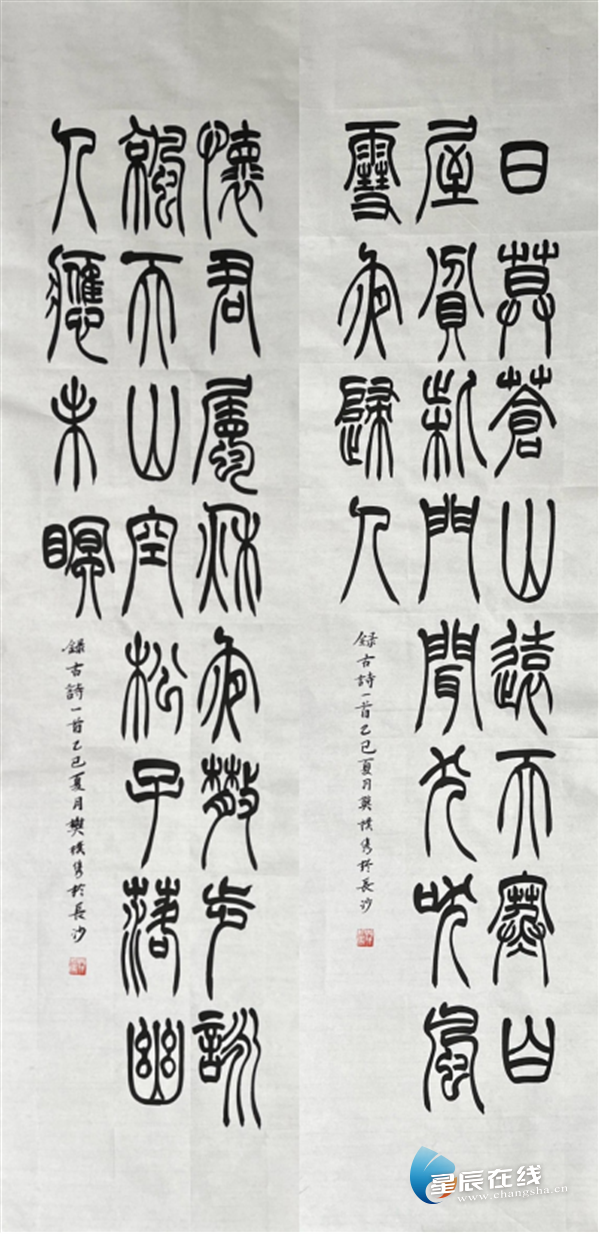 日暮蒼山遠天寒白
屋貧柴門聞犬吠風
雪夜歸人
錄古詩一首乙巳夏月樊於長沙
懷君屬秋夜散步詠
涼天山空松子落幽
人應未瞑
錄古詩一首乙巳夏月樊於長沙
星辰在线
www.changsha.cn